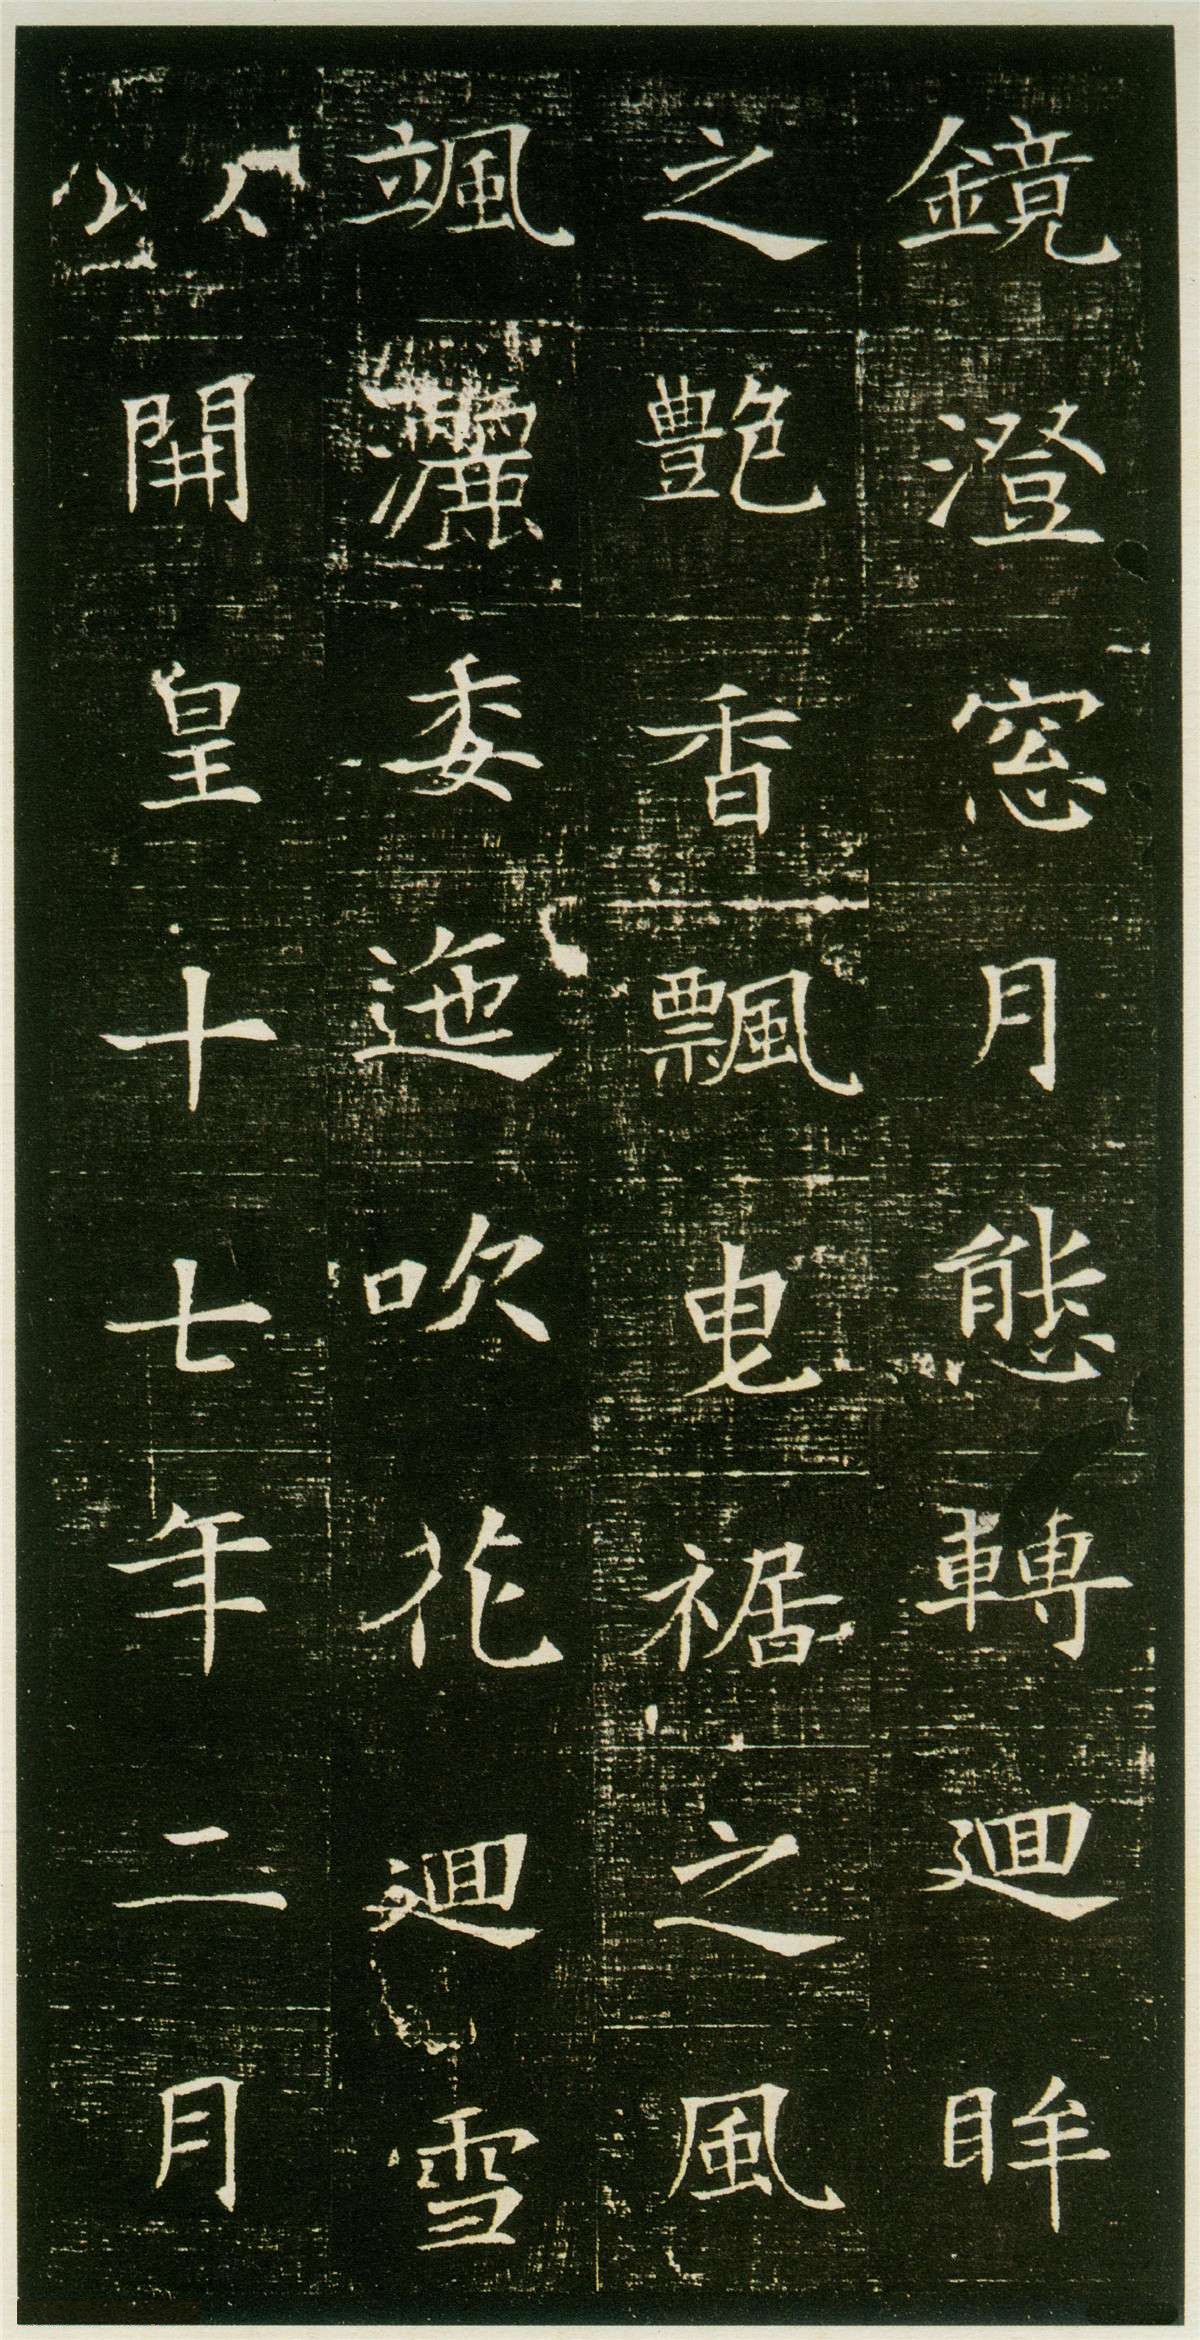 鏡澄窓月態轉迴眸
之艶香飄曳裾之風
颯灑委迆吹花迴雪
以開皇十七年二月